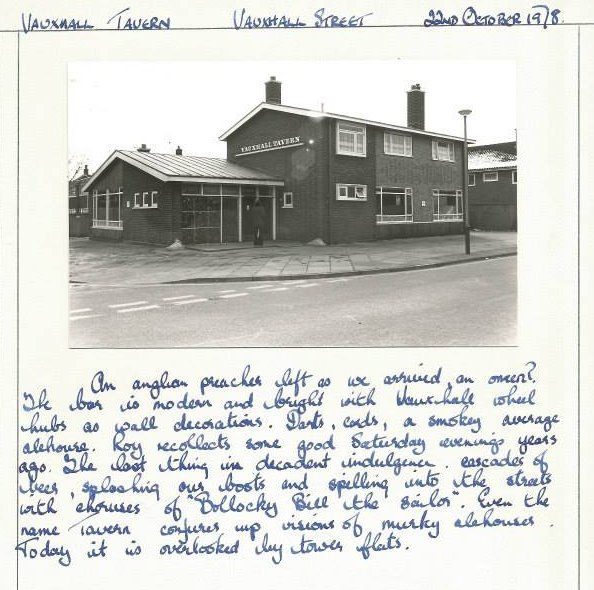 VAUXHALL TAVERN VAUXHALL STREET 22ND OCTOBER 1978.
VAUXHALL TAVERN
An anglian preacher left as we arrived, an omen?.
The bar is modern and bright with Vauxhall wheel
hubs as wall decorations. Darts, cards, a smokey average
alehouse. Roy recollects some good Saturday evenings years
ago. The last thing in decadent indulgence. cascades of
beer, splashing our boots and spelling into the streets
with choruses of "Bollocky Bill the Sailor". Even the
name Tavern conjures up visions of murky alehouses.
Today it is overlooked by tower flats.